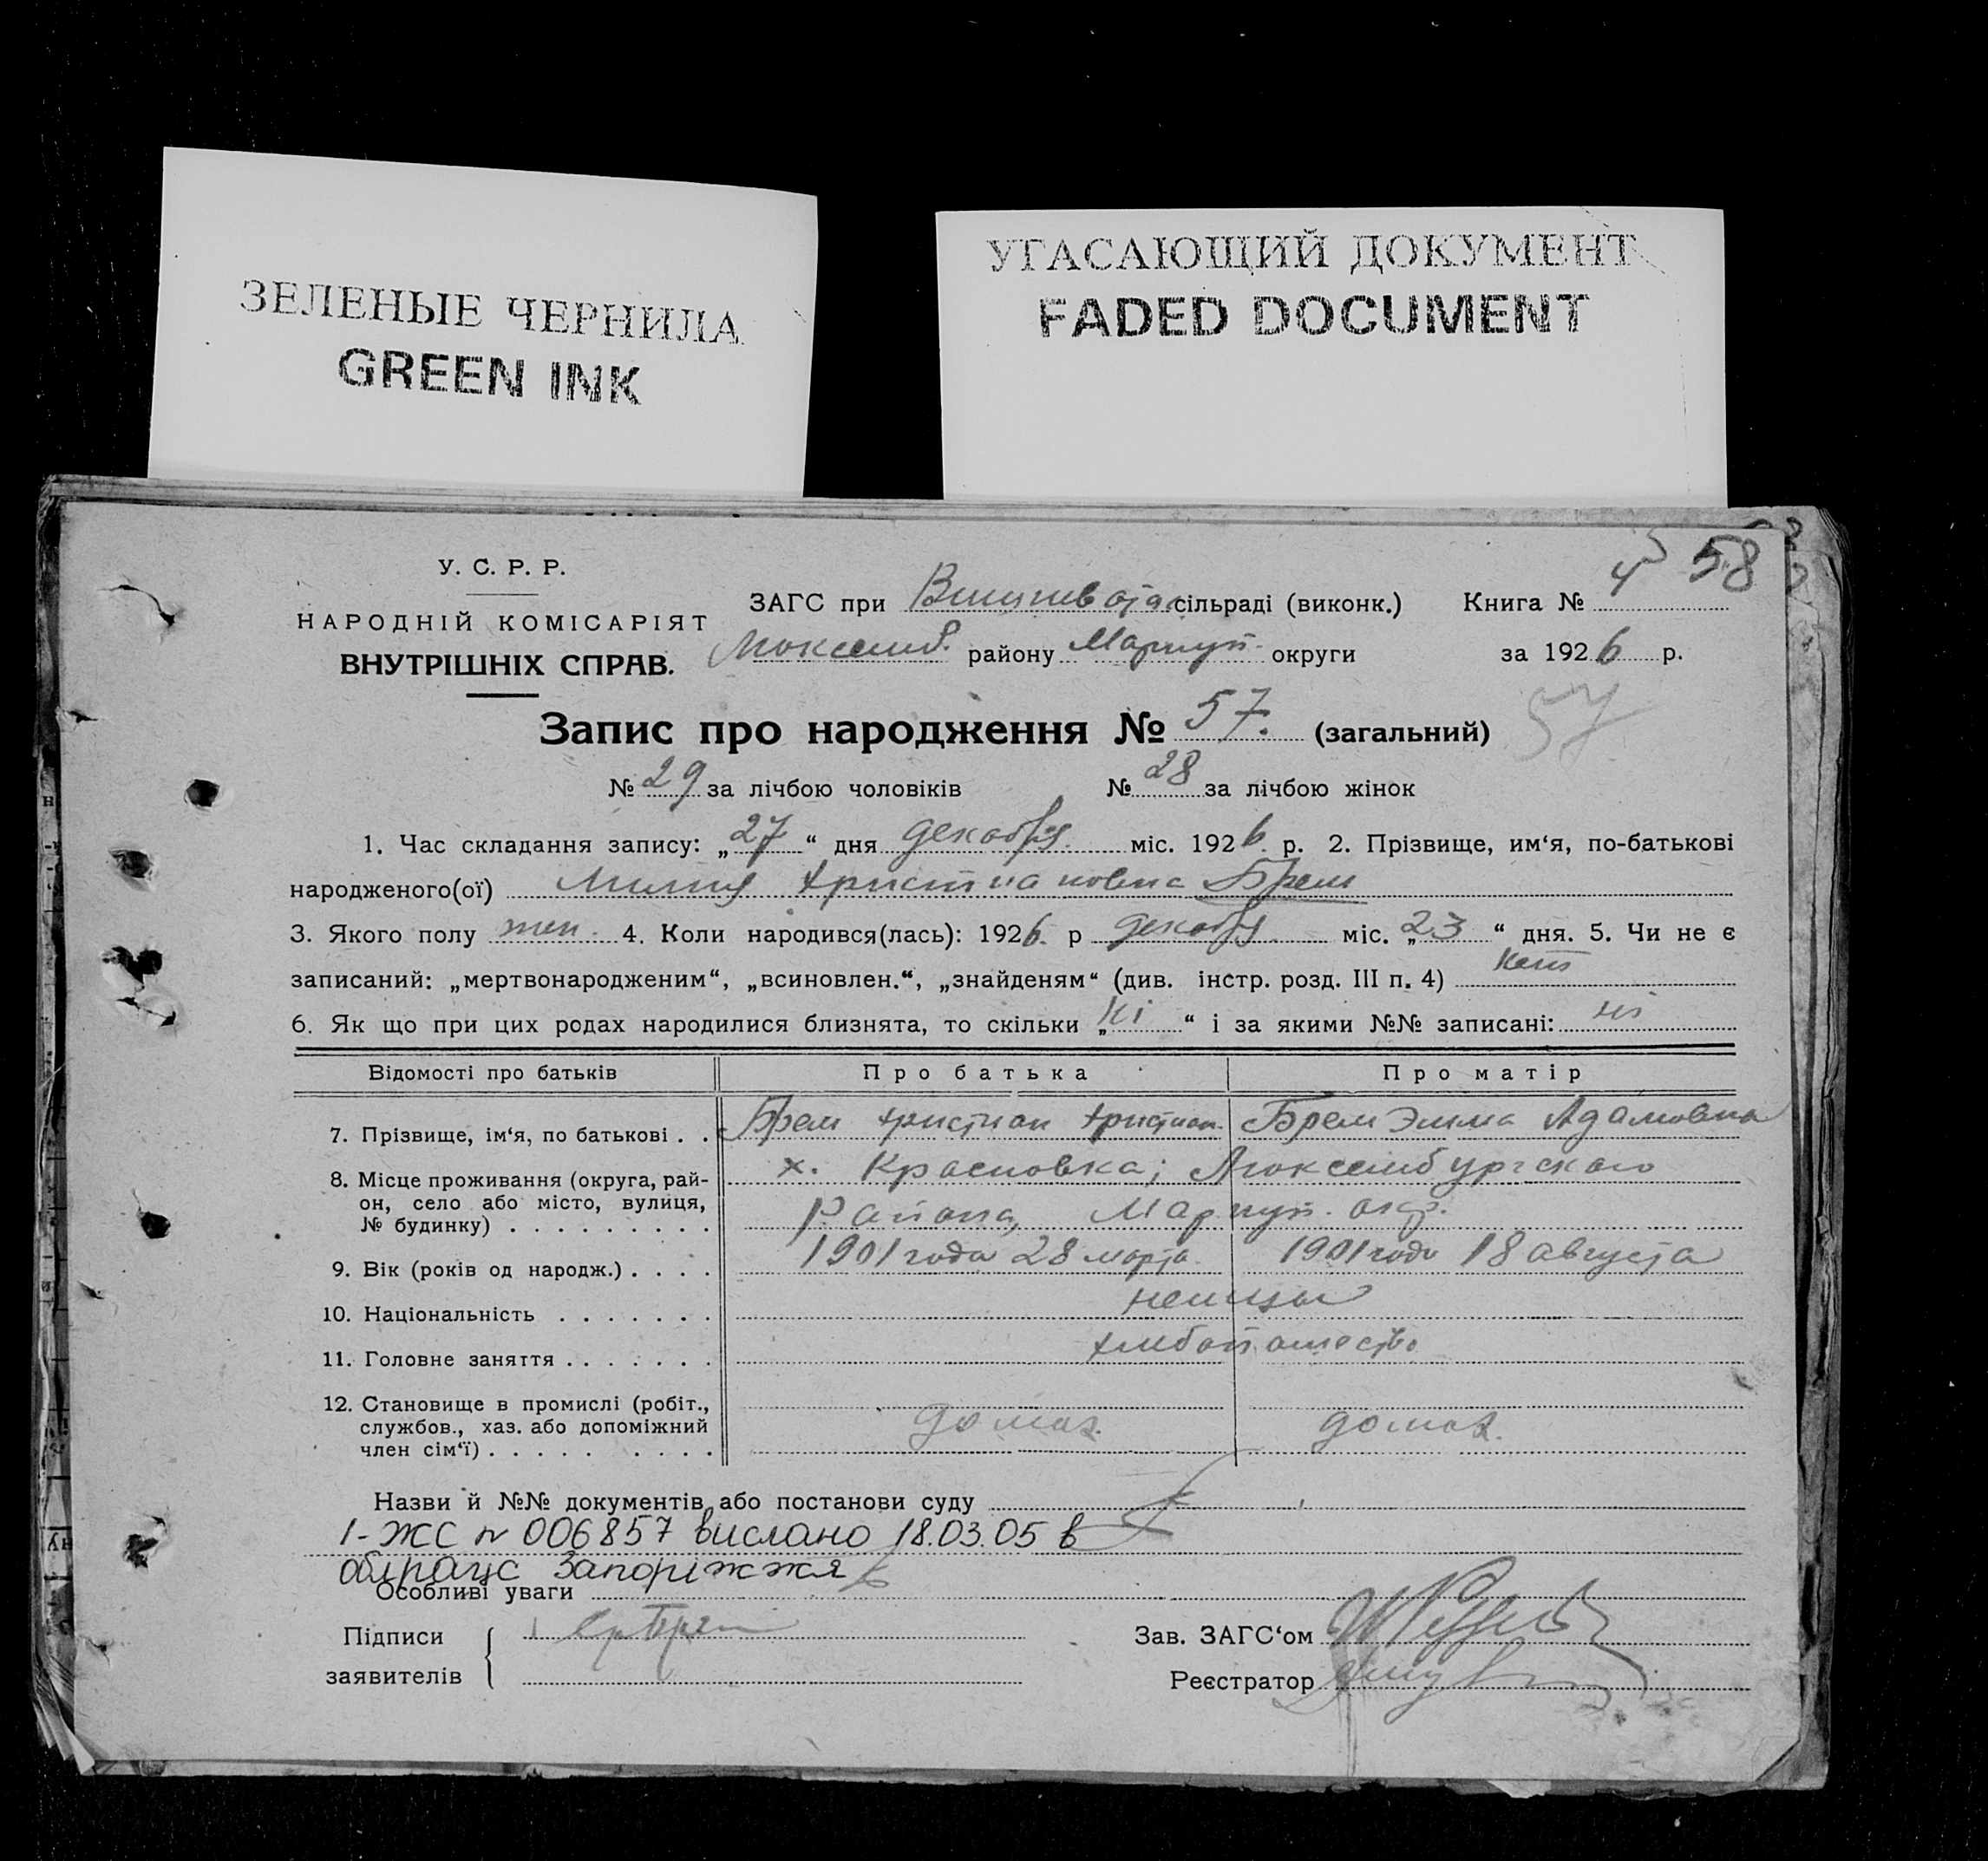 ЗЕЛЕНЫЕ ЧЕРНИЛА
GREEN INK
УГАСАЮЩИЙ ДОКУМЕНТ
FADED DOCUMENT
58
У. С. Р. Р.
НАРОДНІЙ КОМІСАРІЯТ
ВНУТРІШНІХ СПРАВ.
ЗАГС при сільраді (виконк.) Книга №
Люксемб. району Мариуп. округи за 1926 р.
Запис про народження № 57. (загальний) 57
№ 29 за лічбою чоловіків № 28 за лічбою жінок
1. Час складання запису: „27“ дня декабря міс. 1926 р. 2. Прізвище, им‘я, по-батькові
народженого(ої) Лилия Христиановна Брем
3. Якого полу жен. 4. Коли народився(лась): 1926. р декабря міс. „23“ дня. 5. Чи не є
записаний: „мертвонародженим“, „всиновлен.“, „знайденям“ (див. інстр. розд. III п. 4)
6. Як що при цих родах народилися близнята, то скільки „ні“ і за якими №№ записані: ні
Відомості про батьків Про батька Про матір
7. Прізвище, ім‘я, по батькові . . Брем Христиан Христиан. Брем Эмма Адамовна
8. Місце проживання (округа, рай- х. Красновка; Люксембургского
он, село або місто, вулиця, Района, Мариуп. окр.
№ будинку) . . . . . . . . .
9. Вік (років од народж.) . . . . 1901 года 28 марта 1901 года 18 августа
10. Національність . . . . . . . немцы
11. Головне заняття . . . . . . . хлебопашество
12. Становище в промислі (робіт.,
службов., хаз. або допоміжний домаз. домаз.
член сім‘ї) . . . . . . . . .
Назви й №№ документів або постанови суду
I-ЖС № 006857 вислано 18.03.05 в
облрацс Запоріжжя
Особливі уваги
Підписи
заявителів
Зав. ЗАГС‘ом
Реєстратор